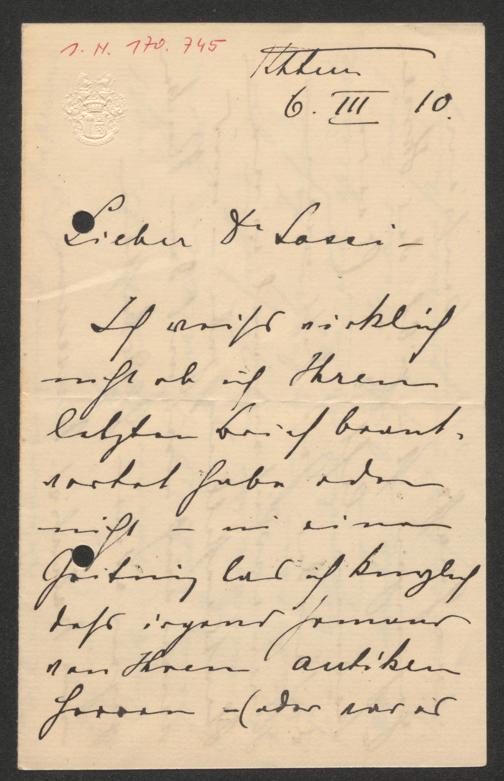 J. N. 170.745
6. III 10.
Lieber Dr Lassi –
Ich weiss wirklich
nicht ob ich Ihren
letzten Brief beant-
wortet habe oder
nicht – in einer
Zeitung las ich kürzlich
dass irgend Jemand
von Ihren antiken
– (oder war es